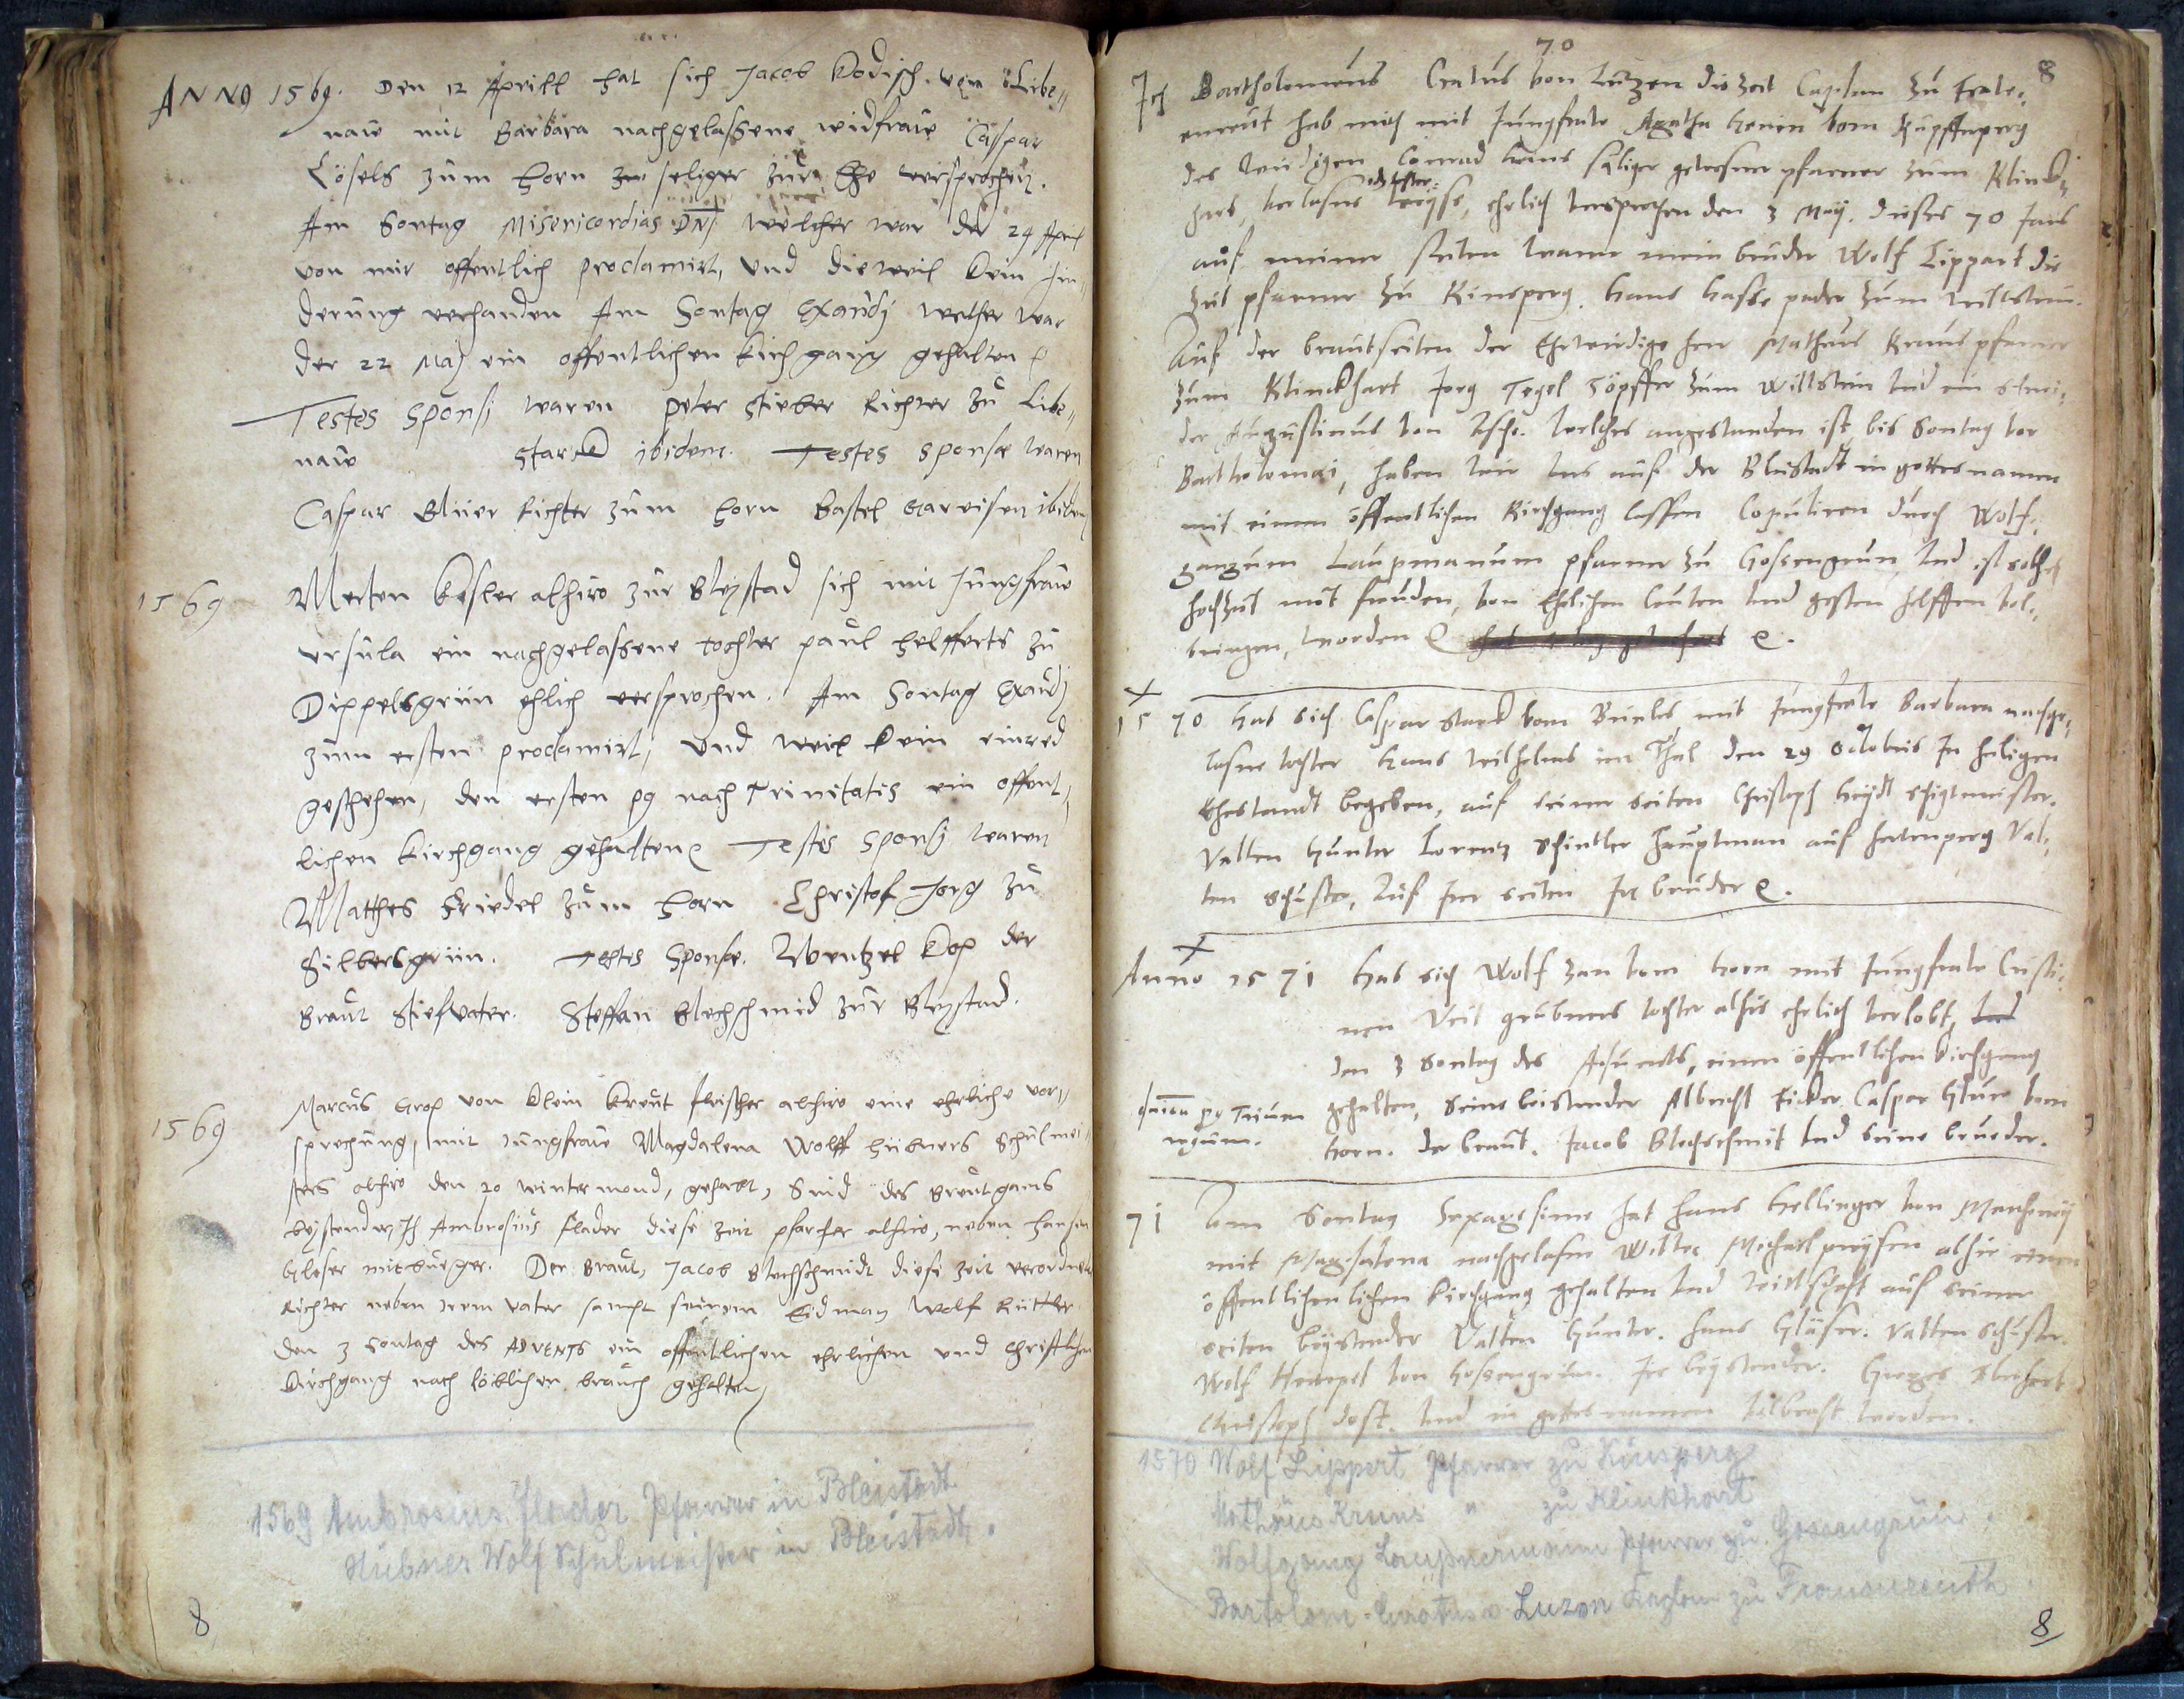 ANNO 1569. Den 12 Aprill hat sich Jacob Kodisch von Libe,,
naw mit Barbara nachgelassene widfraw Caspar
Lösels zum horn seliger zur Ehe versprochen.
Am Sontag Misericordias DNI welcher war der 24 April
von mir offentlich proclamirt, und dieweil kein Hin,
derung verhanden Am Sontag Exaudj welcher war
der 22 Maj ein offentlichen kirchgang gehalten
Testes Sponsj waren peter stieber Richter zu Libe,,
naw Starck ibidem. Testes sponsæ waren
Caspar Richter zum horn Bastel ibidem
1569
Merten Kesler alhiro zur Bleystad sich mit Jungfraw
Ursula ein nachgelassene tochter paul helfferts zu
Dippelsgrün ehlich versprochen. Am Sontag Exaudj
zum ersten proclamirt, Und weil kein einred
geschehen, den ersten nach Trinitatis ein offent,
lichen kirchgang gehaltten Testes Sponsj waren
Matthes Friedel zum horn Christof Jorg zu
Silbersgrün. Testes Sponsæ. Wentzel der
Braut Stiefvater. Steffan Blechschmid zur Bleystad.
1569
Marcus von klein kreut fleischer alhiro eine ehrliche vor,,
sprechung, mit Jungfraw Magdalena Wolff hübners Schulmei,
sters alhiro den 20 wintermond, gehabt, Sind des Breutgams
beystender, Ich Ambrosius flader diese zeit pfarher alhiro, neben hansen
gleser mitburger. Der Braut, Jacob Blechschmidt diese zeit verordneter
Richter neben irem vater sampt seinem Eidman Wolf
Den 3 Sontag des ADVENTS ein offentlichen ehrlichen und christlichen
kirchgang nach löblichen brauch gehalten
1569 Ambrosius Flader Pfarrer in Bleistadt
Hübner Wolf Schulmeister in Bleistadt.
8
70
8
Ich Bartholomeus Cratus von Lutzen die zeit Caplan zu Fraw,
enreut hab mich mit Jungfraw Agatha vom Kupffperg
des wirdigen Conrad seliger gewesener pfarner zum Klinck,
hart, verlasne tochter, ehrlich versprochen den 3 Maij. dieses 70 Jars
auf meiner seiten waren mein bruder Wolf Lippart die
zeit pfarner zu Kinsperg. Hans Hasse zum Wiltstein.
Auf der brautseiten der Ehrwirdige herr Matheus Kraus pfarner
zum Klinckhart Jorg Töpffer zum Willstein und ein schnei,
der Augustinus von Asch. welches angestanden ist bis Sontag vor
Bartholomæi, haben wir uns auf der Bleistadt in gottes namen
mit einem öffentlichen Kirchgang lassen Copuliren durch Wolf,
gangum Laupmanum pfarner zu Gossengrun, und ist solche
hochzeit mit freuden, von Ehrlichen leuten und gesten helffen vol,
bringen, worden
1570 Hat sich Caspar Starck vom mit Jungfraw Barbara nachge,
lasne tochter Hans Wilhelms im Thal den 29 Octobris In heiligen
Ehestandt begeben, auf seiner seiten Christoph Heydt schigtmeister.
Valten Gunter Lorentz Schindler hauptman auf Hertenperg Val,
ten Schuster, Auf Irer seiten Ire bruder
Anno 1571 Hat sich Wolf Zan vom Horn mit Jungfraw Cristi,
nen Veit grubners tochter alhie ehrlich verlobt,
den 3 Sontag des Aduents, einen öffentlichen Kirchgang
gehalten, Seine beistender Albrecht Ficker, Caspar vom
Horn. der braut. Jacob Blechschmit und seine brueder.
71 Am Sontag Sexagesime hat Hans Hellinger von
mit Magdalena nachgelasen Witbe Michael alhie einen
öffentlichenlichen kirchgang gehalten und wirttschaft auf seiner
seiten beystender Valten Gunter. Hans Gläser. Valten Schuster.
Wolf Hempel von Gossengrun. Ire beystender.
Christoph dost. und in gottes namen volbracht worden.
1570 Wolf Lippert Pfarrer zu Künsperg
Mathäus Kraus " zu Klinkhart
Wolfgang Laupnermann Pfarrer zu Gossengrün.
Bartolom. Cratus v. Luzen Kaplan zu Frauenreuth.
8